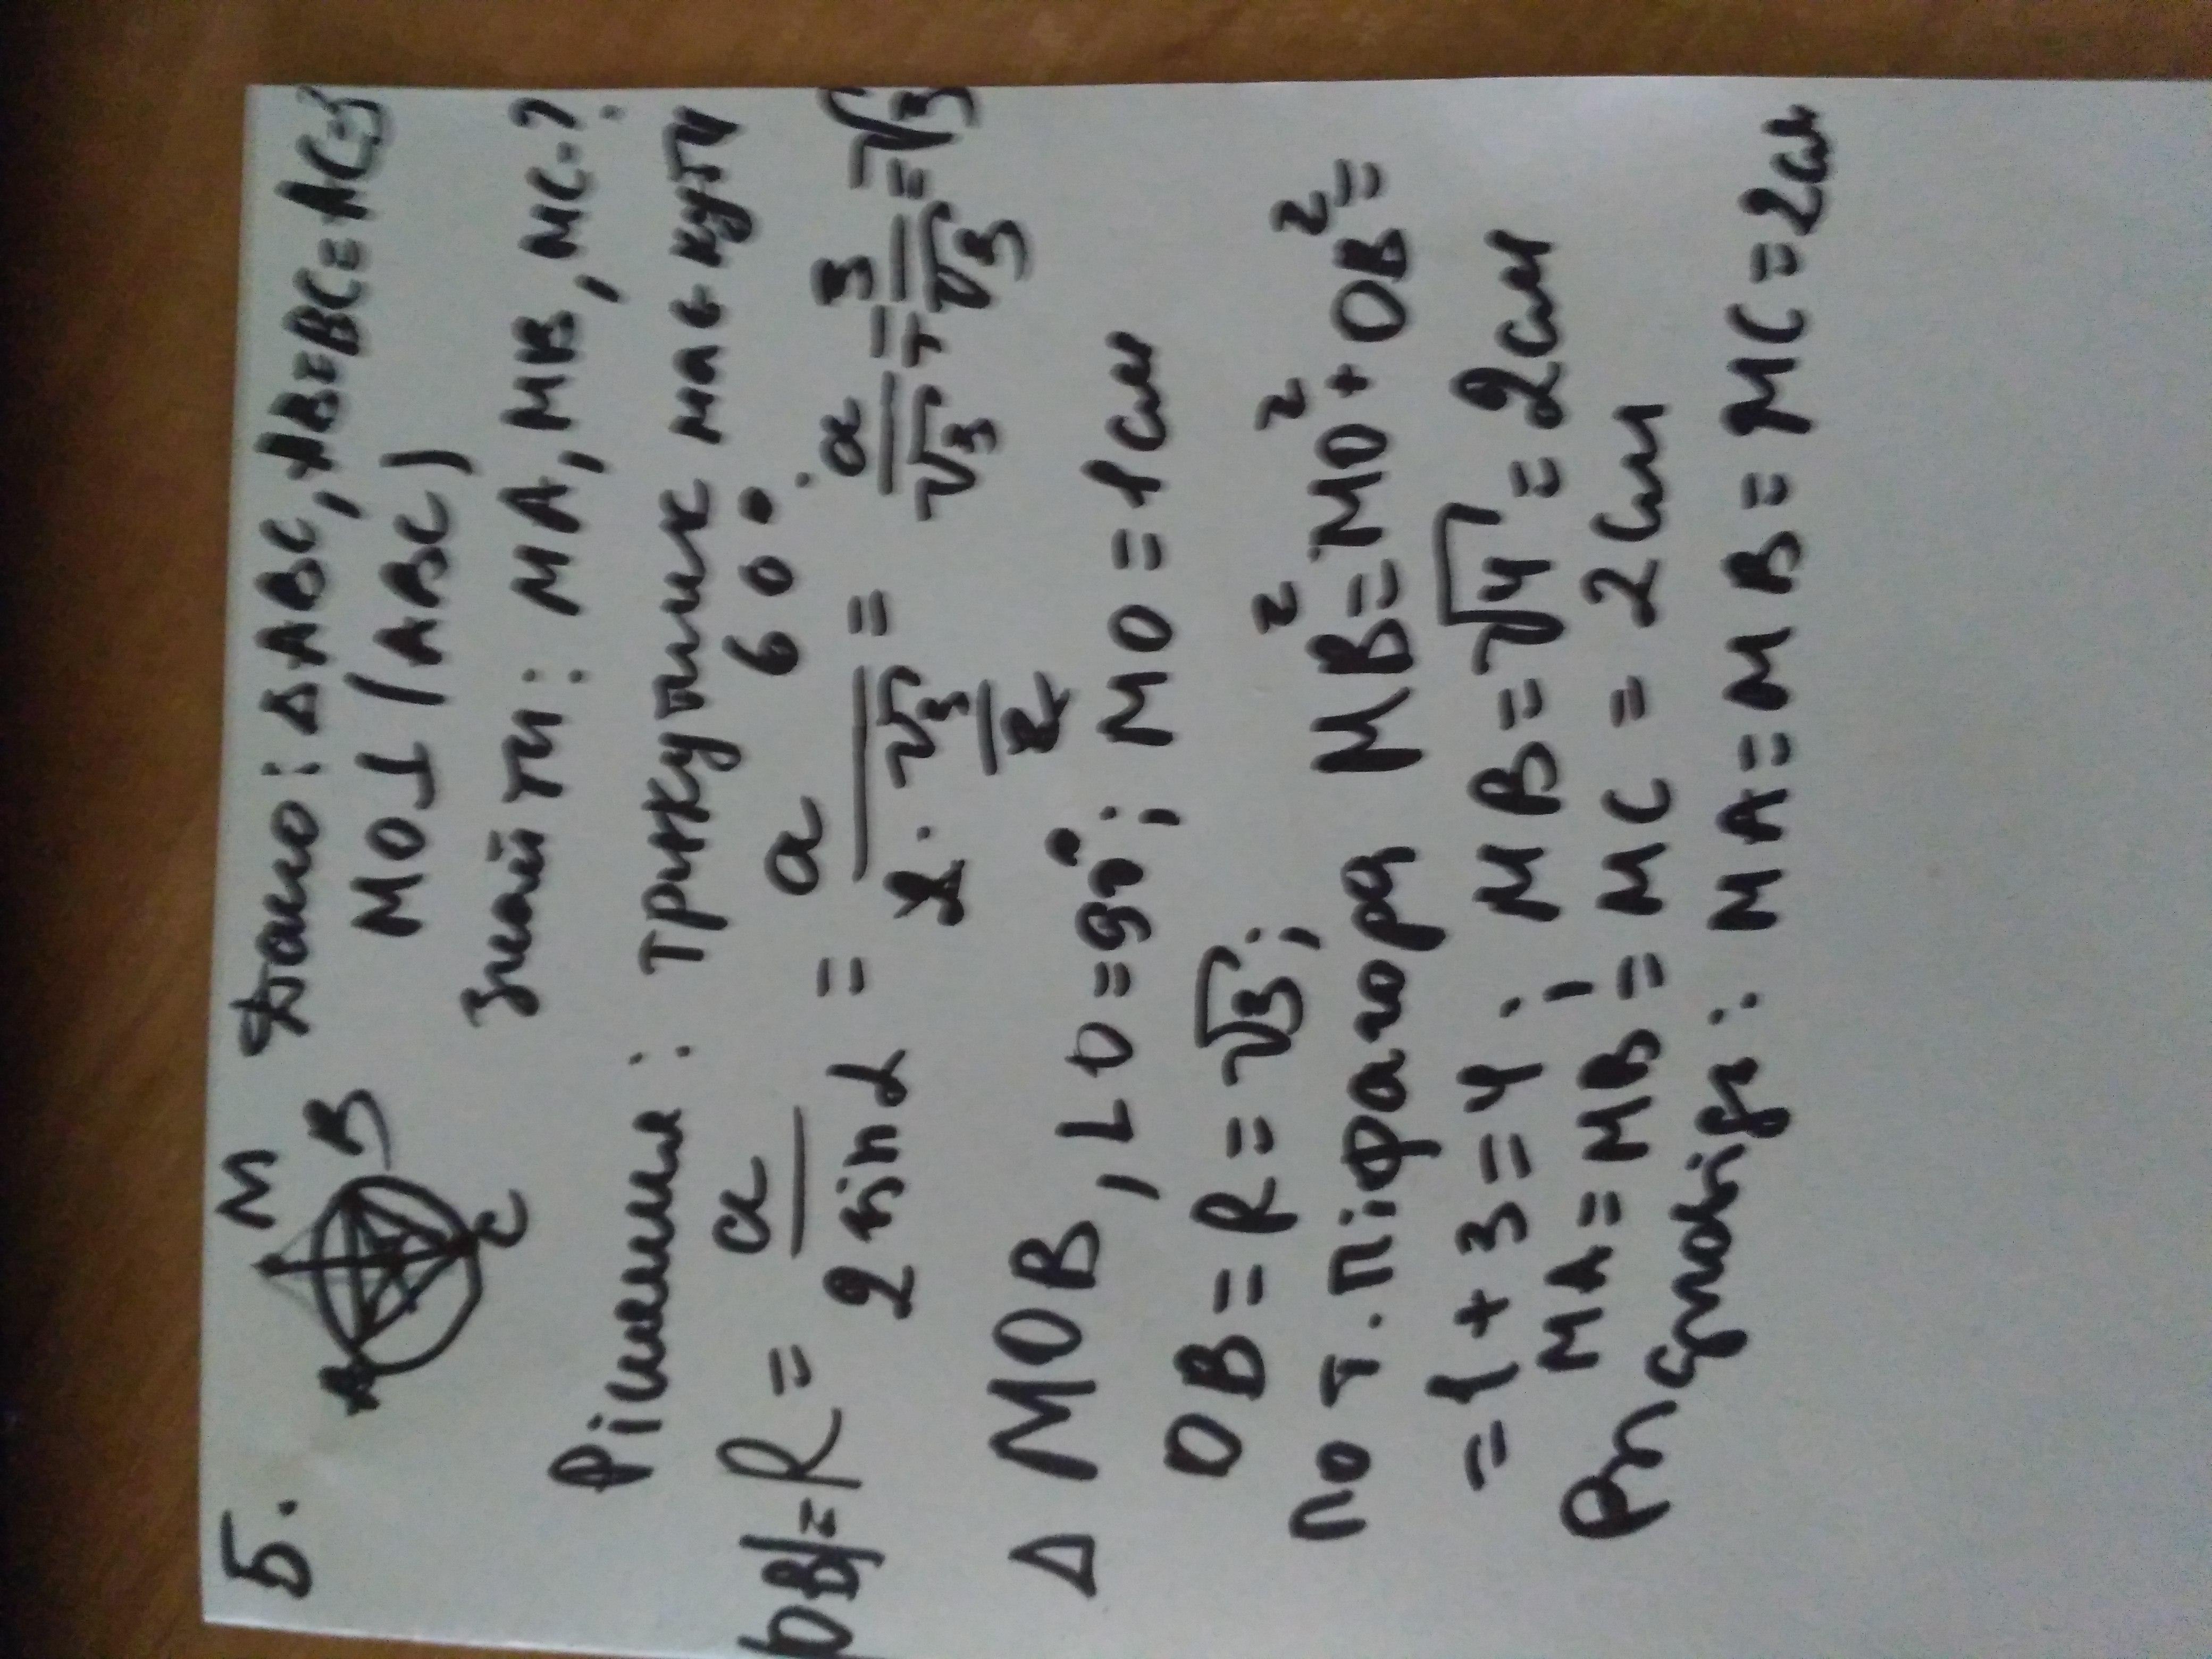 5. M A B C Дано: ΔABC, AB=BC=AC=3
MO⊥(ABC)
Знайти: MA, MB, MC-?
Рішення: трикутник має кути
60°.
OB=R = a/(2 sin α) = a/(2·√3/2) = a/√3 = 3/√3 = √3
Δ MOB, ∠O=90°; MO=1см
OB=R=√3;
по т. Піфагора MB²=MO²+OB²=
=1+3=4; MB=√4=2см
MA=MB=MC=2см
: MA=MB=MC=2см